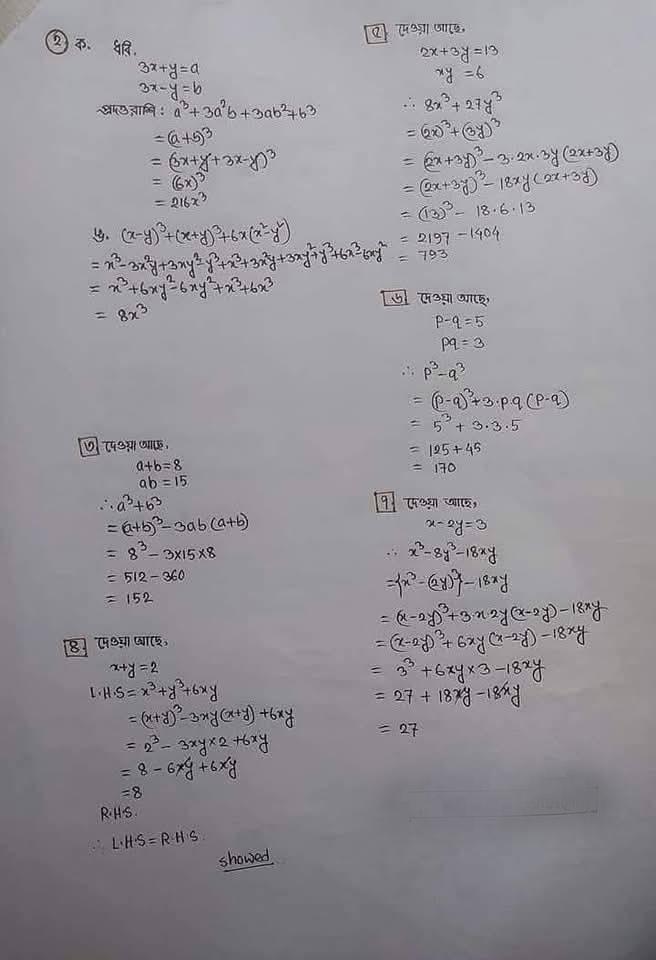 ২ ক. ধরি,
3x+y=a
3x-y=b
প্রদত্তরাশি: a³+3a²b+3ab²+b³
=(a+b)³
= (3x+y+3x-y)³
= (6x)³
= 216x³
ঙ. (x-y)³+(x+y)³+6x(x²-y²)
= x³-3x²y+3xy²-y³+x³+3x²y+3xy²+y³+6x³-6xy²
= x³+6xy²-6xy²+x³+6x³
= 8x³
৩ দেওয়া আছে,
a+b=8
ab=15
∴ a³+b³
= (a+b)³-3ab(a+b)
= 8³-3×15×8
= 512-360
= 152
৪ দেওয়া আছে,
x+y=2
L.H.S = x³+y³+6xy
= (x+y)³-3xy(x+y)+6xy
= 2³-3xy×2+6xy
= 8-6xy+6xy
=8
R.H.S.
∴ L.H.S=R.H.S.
showed
৫ দেওয়া আছে,
2x+3y=13
xy=6
∴ 8x³+27y³
= (2x)³+(3y)³
= (2x+3y)³-3.2x.3y(2x+3y)
= (2x+3y)³-18xy(2x+3y)
= (13)³-18.6.13
= 2197-1404
= 793
৬ দেওয়া আছে,
p-q=5
pq=3
∴ p³-q³
= (p-q)³+3.p.q(p-q)
= 5³+3.3.5
= 125+45
= 170
৭ দেওয়া আছে,
x-2y=3
∴ x³-8y³-18xy
={x³-(2y)³}-18xy
= (x-2y)³+3.x.2y(x-2y)-18xy
= (x-2y)³+6xy(x-2y)-18xy
= 3³+6xy×3-18xy
= 27+18xy-18xy
= 27